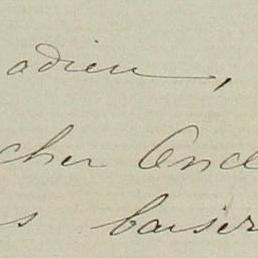 adieu,
cher Oncl
s baiser